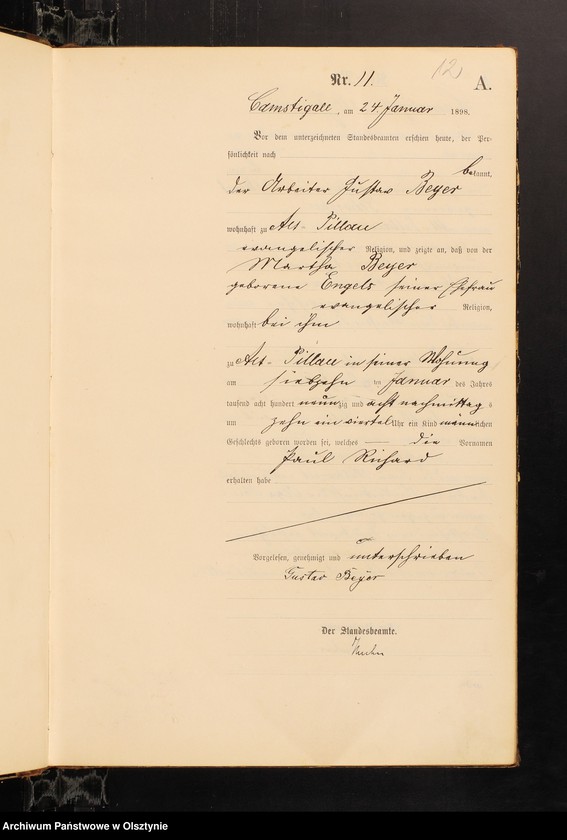 12
Nr. 11. A.
Camstigall, am 24 Januar 1898.
Vor dem unterzeichneten Standesbeamten erschien heute, der Per-
sönlichkeit nach
bekannt,
der Arbeiter Gustav Beyer
wohnhaft zu Alt-Pillau
evangelischer Religion, und zeigte an, daß von der
Martha Beyer
geborene Engels seiner Ehefrau
evangelischer Religion,
wohnhaft bei ihm
zu Alt-Pillau in seiner Wohnung
am siebzehn ten Januar des Jahres
tausend acht hundert neunzig und acht nachmittags
um zehn ein viertel Uhr ein Kind männlichen
Geschlechts geboren worden sei, welches die Vornamen
Paul Richard
erhalten habe
Vorgelesen, genehmigt und unterschrieben
Gustav Beyer
Der Standesbeamte.
Archiwum Państwowe w Olsztynie